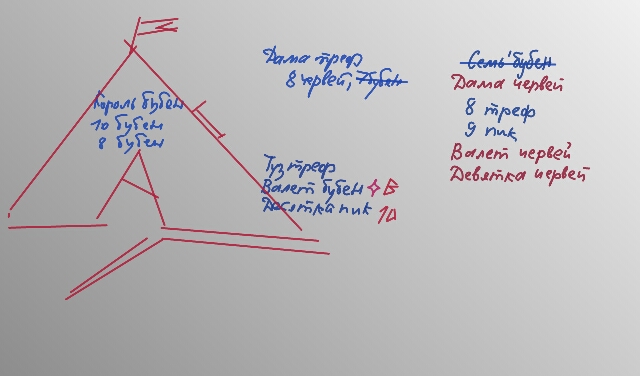 Король бубен
10 бубен
8 бубен
Дама треф
8 червей, 7 бубен
Туз треф
Валет бубен В
Десятка пик 10
Семь бубен
Дама червей
8 треф
9 пик
Валет червей
Девятка червей